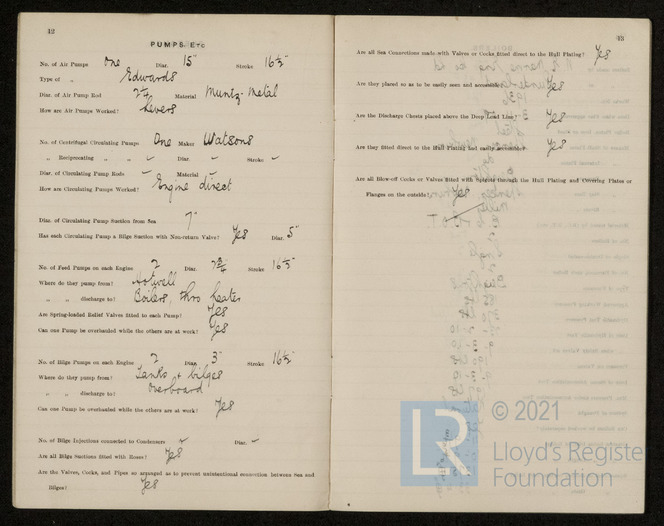 42
PUMPS, ETC
No. of Air Pumps One Diar. 15" Stroke 16½"
Type of „ Edwards
Diar. of Air Pump Rod 2¼ Material Muntz-Metal
How are Air Pumps Worked? Levers
No. of Centrifugal Circulating Pumps One Maker Watsons
„ Reciprocating „ „ ✓ Diar. ✓ Stroke ✓
Diar. of Circulating Pump Rods ✓ Material ✓
How are Circulating Pumps Worked? Engine direct
Diar. of Circulating Pump Suction from Sea 7"
Has each Circulating Pump a Bilge Suction with Non-return Valve? Yes Diar. 5"
No. of Feed Pumps on each Engine 2 Diar. Stroke 16½"
Where do they pump from? Hotwell
„ „ discharge to? Boilers, thro heater
Are Spring-loaded Relief Valves fitted to each Pump? Yes
Can one Pump be overhauled while the others are at work? Yes
No. of Bilge Pumps on each Engine 2 Diar. 3" Stroke 16½"
Where do they pump from? Tanks + bilges
„ „ discharge to? Overboard
Can one Pump be overhauled while the others are at work? Yes
No. of Bilge Injections connected to Condensers ✓ Diar. ✓
Are all Bilge Suctions fitted with Roses? Yes
Are the Valves, Cocks, and Pipes so arranged as to prevent unintentional connection between Sea and
Bilges? Yes
43
Are all Sea Connections made with Valves or Cocks fitted direct to the Hull Plating? Yes
Are they placed so as to be easily seen and accessible? Yes
Are the Discharge Chests placed above the Deep Load Line? Yes
Are they fitted direct to the Hull Plating and easily accessible? Yes
Are all Blow-off Cocks or Valves fitted with Spigots through the Hull Plating and Covering Plates or
Flanges on the outside? Yes
LR
© 2021
Lloyd's Register
Foundation